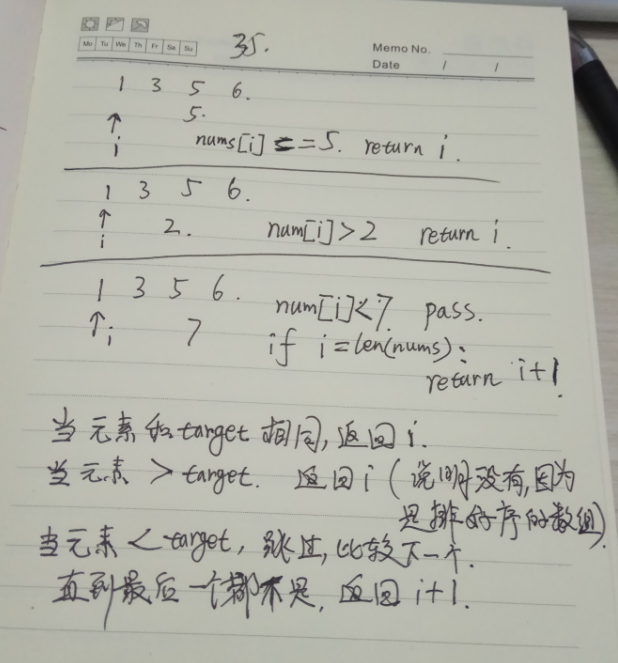 Mo Tu We Th Fr Sa Su
35.
Memo No.
Date / /
1 3 5 6.
5.
↑
i
nums[i] == 5. return i.
1 3 5 6.
↑
i
2.
num[i]>2 return i.
1 3 5 6.
↑i
7
num[i]<7. pass.
if i=len(nums):
return i+1.
当元素和target相同,返回i.
当元素>target. 返回i(说明没有,因为
是排好序的数组).
当元素<target,跳过,比较下一个.
直到最后一个都不是,返回i+1.